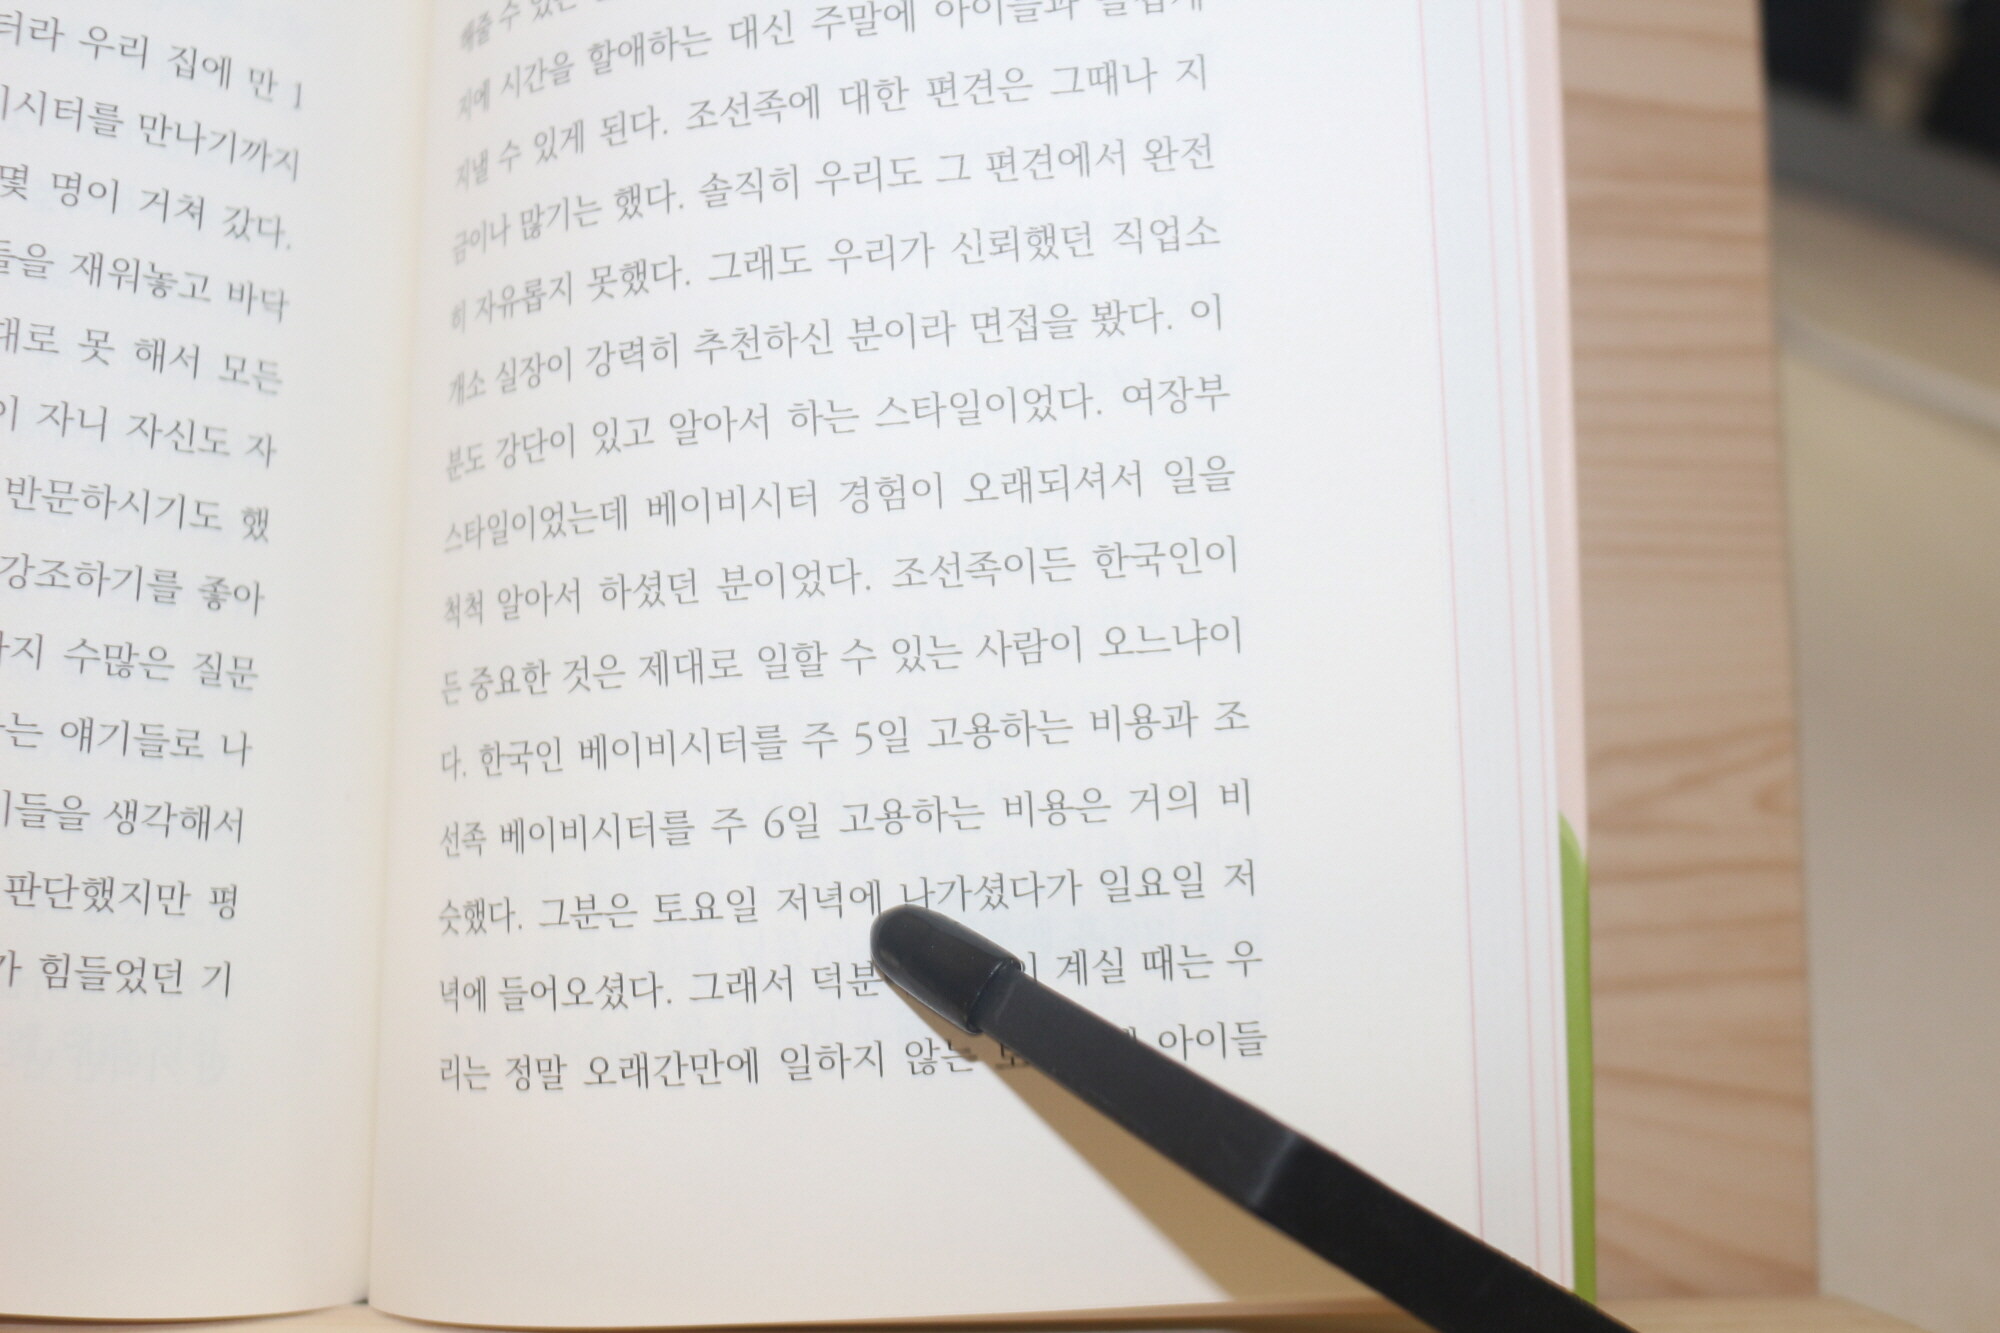 터라 우리 집에 만
시터를 만나기까지
몇 명이 거쳐 갔다.
들을 재워놓고 바닥
대로 못 해서 모든
이 자니 자신도 자
반문하시기도 했
강조하기를 좋아
지 수많은 질문
는 얘기들로 나
이들을 생각해서
판단했지만 평
가 힘들었던 기
해줄 수 있는
지에 시간을 할애하는 대신 주말에 아이들과 즐겁게
지낼 수 있게 된다. 조선족에 대한 편견은 그때나 지
금이나 많기는 했다. 솔직히 우리도 그 편견에서 완전
히 자유롭지 못했다. 그래도 우리가 신뢰했던 직업소
개소 실장이 강력히 추천하신 분이라 면접을 봤다. 이
분도 강단이 있고 알아서 하는 스타일이었다. 여장부
스타일이었는데 베이비시터 경험이 오래되셔서 일을
척척 알아서 하셨던 분이었다. 조선족이든 한국인이
든 중요한 것은 제대로 일할 수 있는 사람이 오느냐이
다. 한국인 베이비시터를 주 5일 고용하는 비용과 조
선족 베이비시터를 주 6일 고용하는 비용은 거의 비
슷했다. 그분은 토요일 저녁에 나가셨다가 일요일 저
녁에 들어오셨다. 그래서 덕분 계실 때는 우
리는 정말 오래간만에 일하지 않는 아이들